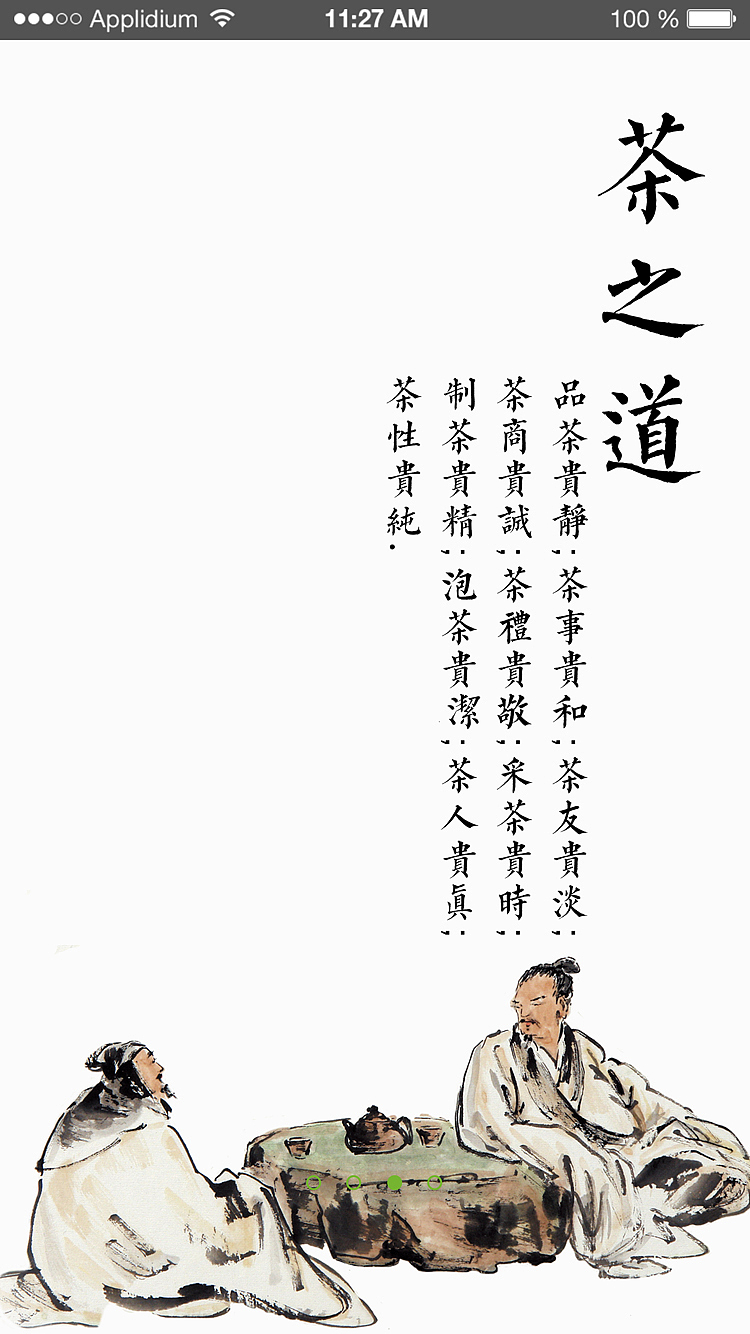 Applidium 11:27 AM 100 %
茶之道
品茶貴靜;茶事貴和;茶友貴淡;
茶商貴誠;茶禮貴敬;采茶貴時;
制茶貴精;泡茶貴潔;茶人貴眞;
茶性貴純.